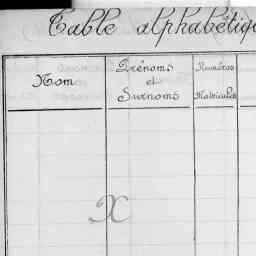 Table alphabétiq
Nom
Prénoms
et
Surnoms
Numéros
Matricules
X